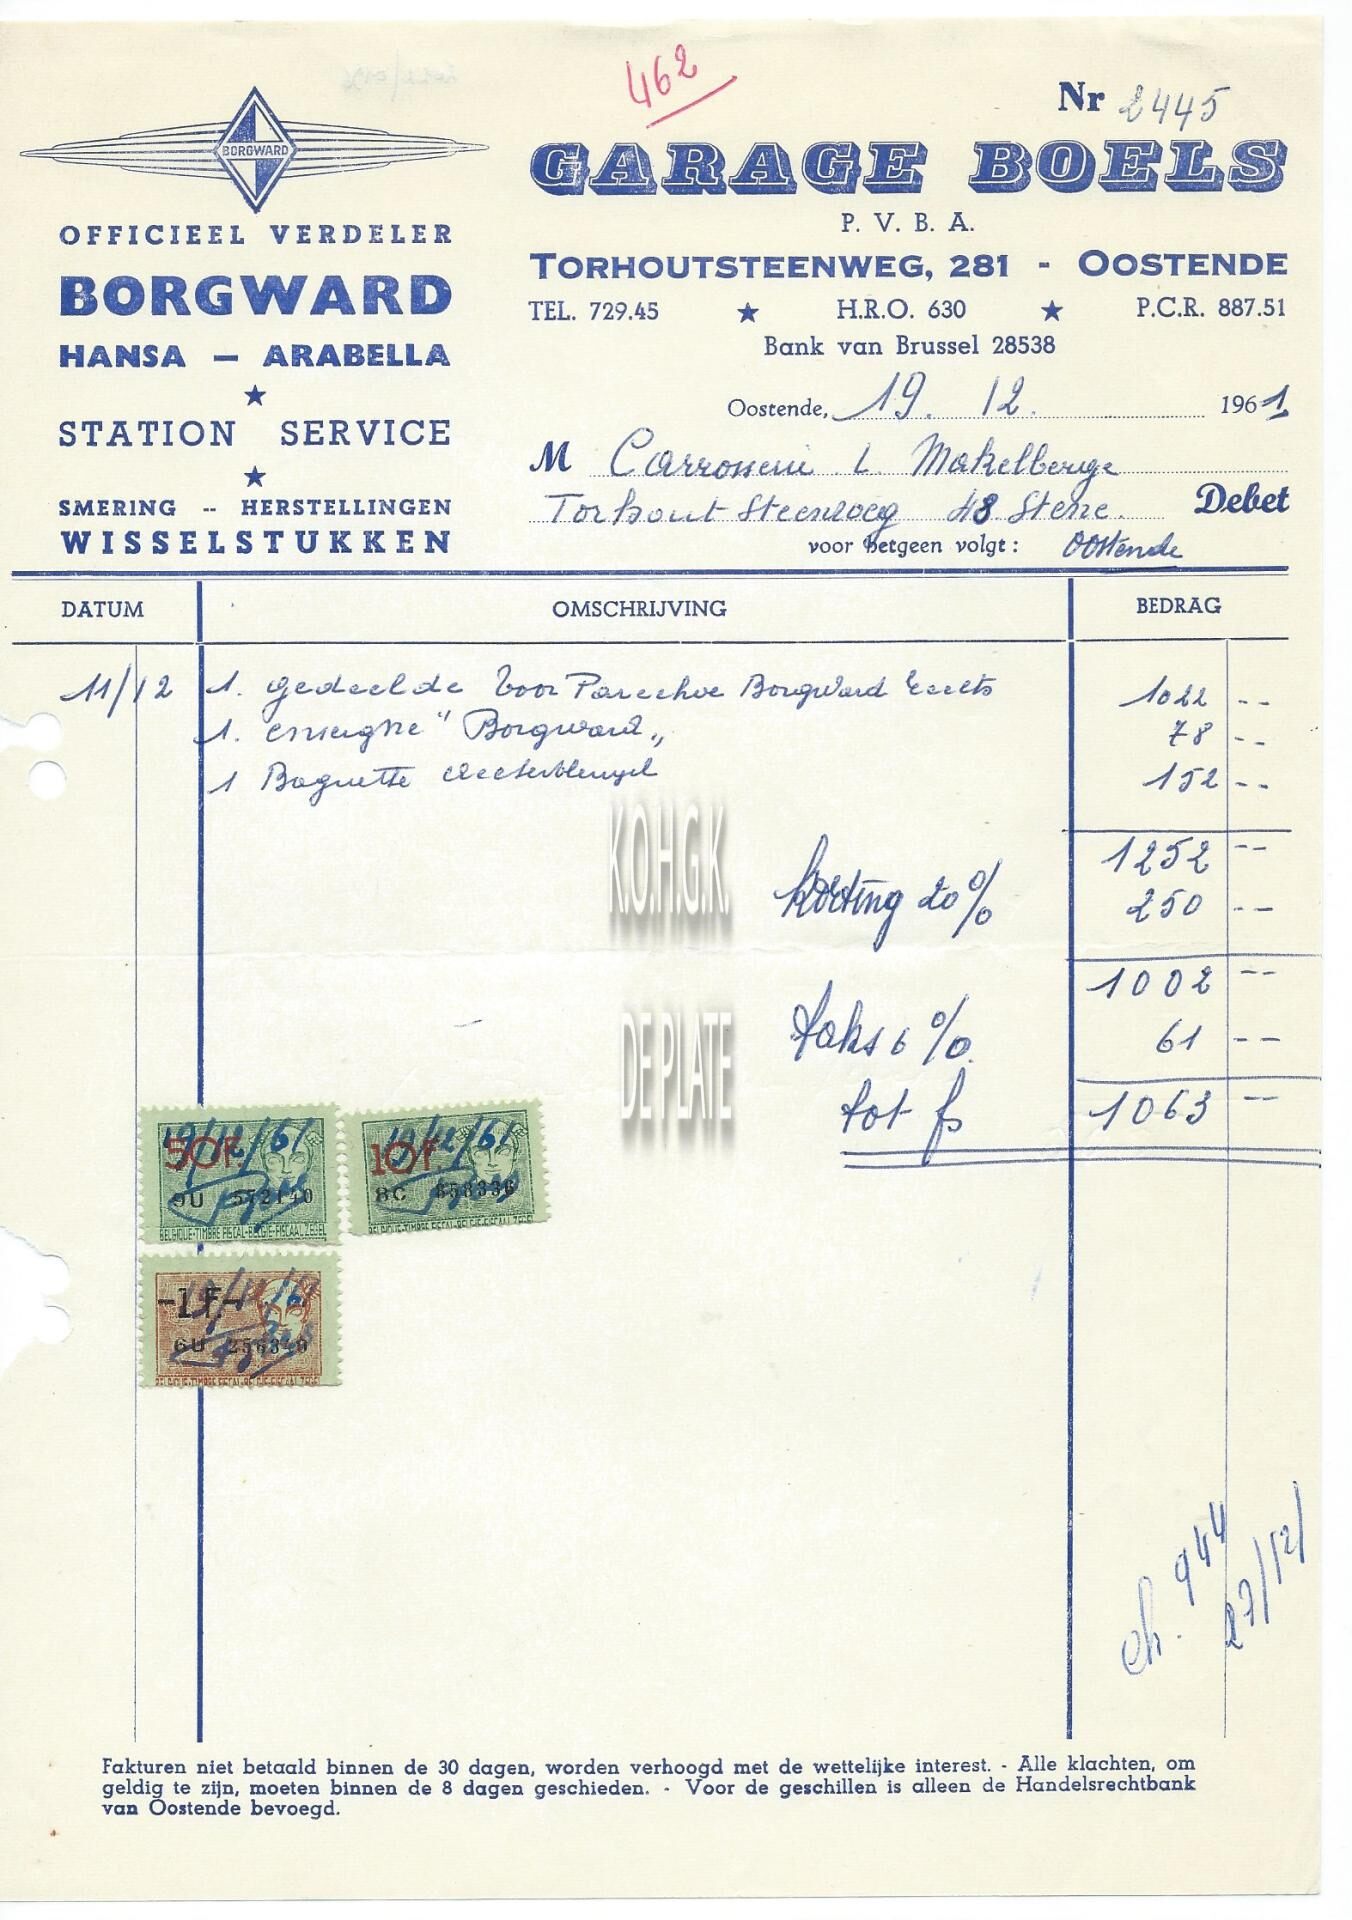 462
Nr 2445
BORGWARD
OFFICIEEL VERDELER
BORGWARD
HANSA — ARABELLA
STATION SERVICE
SMERING -- HERSTELLINGEN
WISSELSTUKKEN
GARAGE BOELS
P. V. B. A.
TORHOUTSTEENWEG, 281 - OOSTENDE
TEL. 729.45 ★ H.R.O. 630 ★ P.C.R. 887.51
Bank van Brussel 28538
Oostende, 19. 12. 1961
M Carrosserie L Makelberge
Torhout Steenweg 48 Stene. Debet
voor hetgeen volgt: Oostende
DATUM OMSCHRIJVING BEDRAG
11/12 1. gedeelde voor Parechoc Borgward 1022 --
1. enseigne "Borgward" 78 --
1 Baguette 152 --
1252 --
korting 20% 250 --
1002 --
taks 6% 61 --
tot fs 1063 --
K.O.H.G.K.
DE PLATE
50F. 19/12/61
9U 572140
BELGIQUE-TIMBRE FISCAL-BELGIE-FISCAAL ZEGEL
10F. 19/12/61
8C 858336
BELGIQUE-TIMBRE FISCAL-BELGIE-FISCAAL ZEGEL
-1F.- 19/12/61
6U 256340
BELGIQUE-TIMBRE FISCAL-BELGIE-FISCAAL ZEGEL
ch. 944
27/12/
Fakturen niet betaald binnen de 30 dagen, worden verhoogd met de wettelijke interest. - Alle klachten, om
geldig te zijn, moeten binnen de 8 dagen geschieden. - Voor de geschillen is alleen de Handelsrechtbank
van Oostende bevoegd.